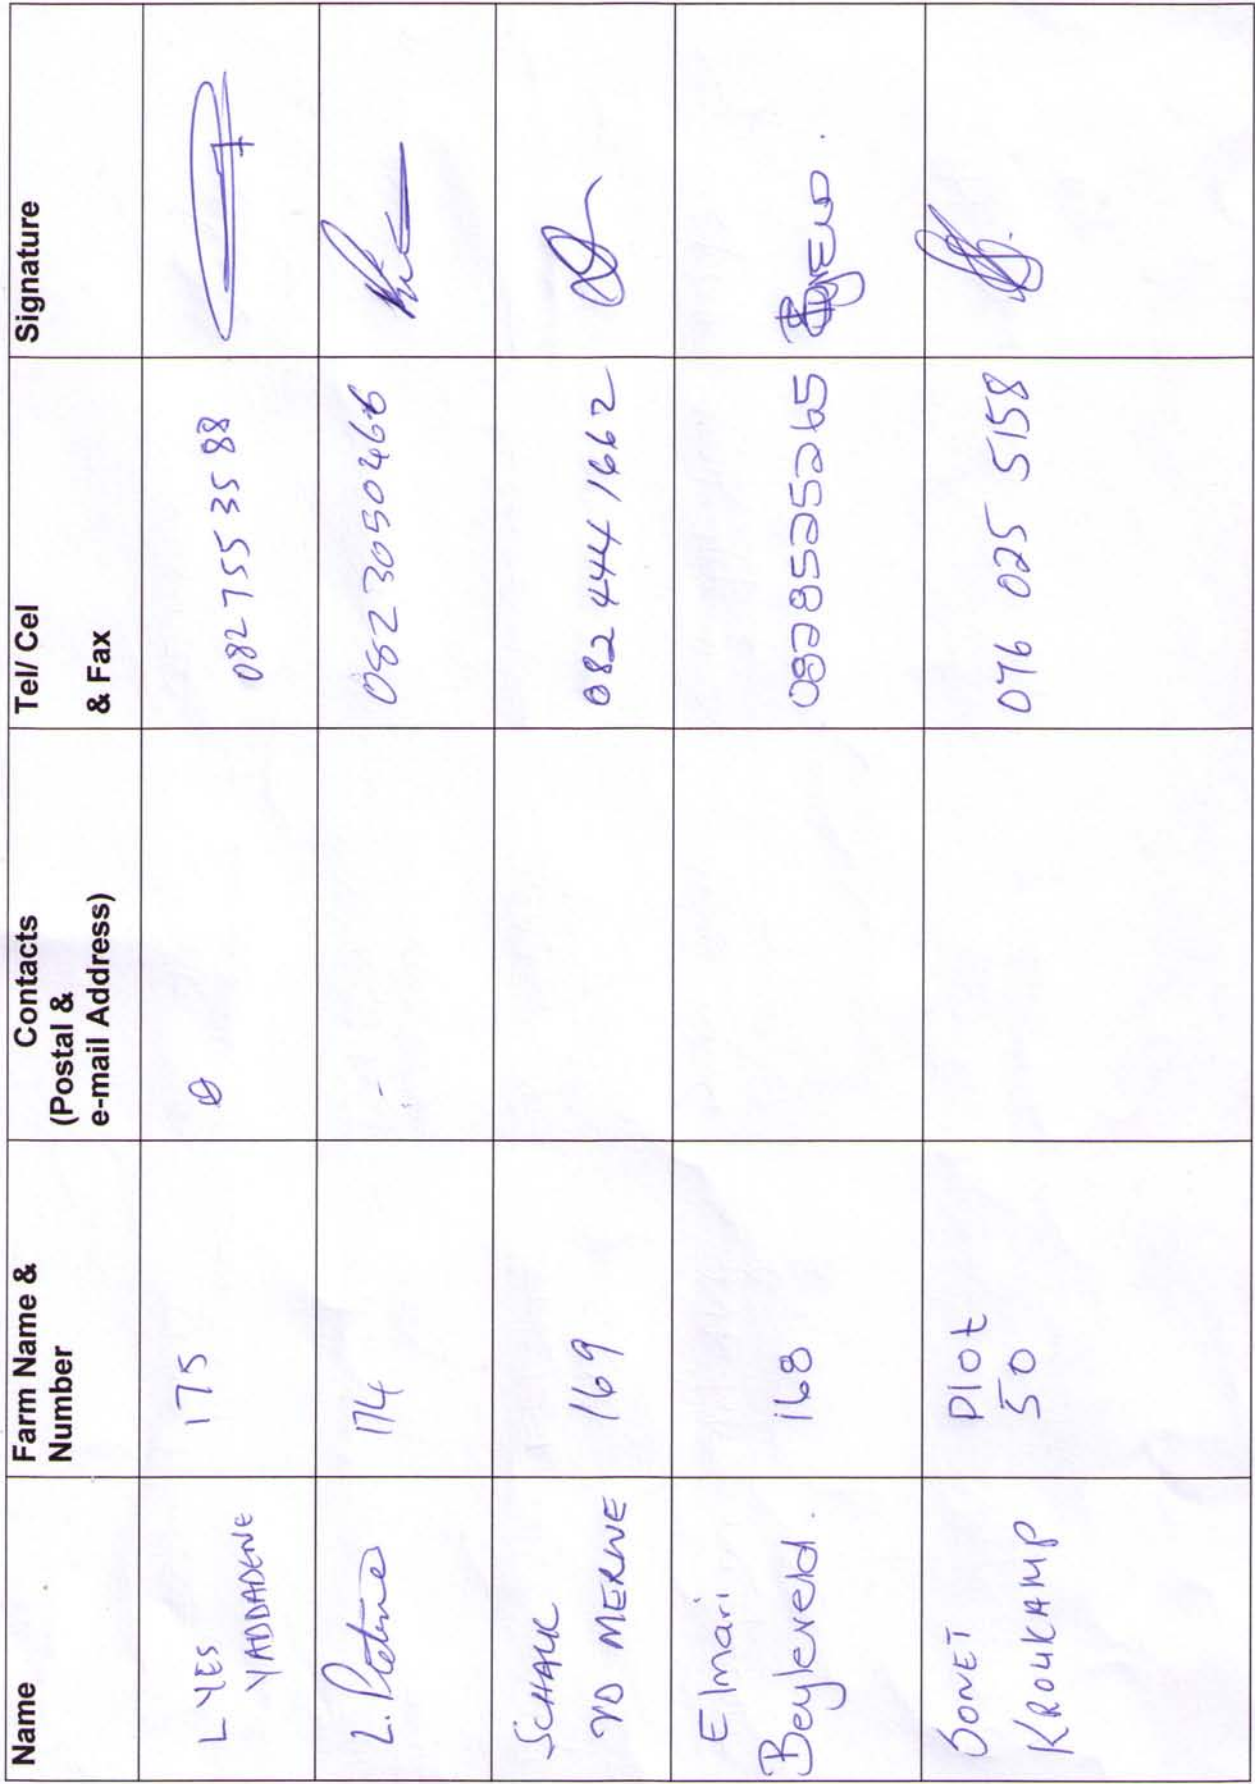 Name
Farm Name &
Number
Contacts
(Postal &
e-mail Address)
Tel/ Cel
& Fax
Signature
LYES
YADDADENE
175
082 755 35 88
L.
174
082 3050466
SCHALK
VD MERWE
169
082 444 1662
Elmari
Beyleveld.
168
0828525265
SONET
KROUKAMP
Plot
50
076 025 5158